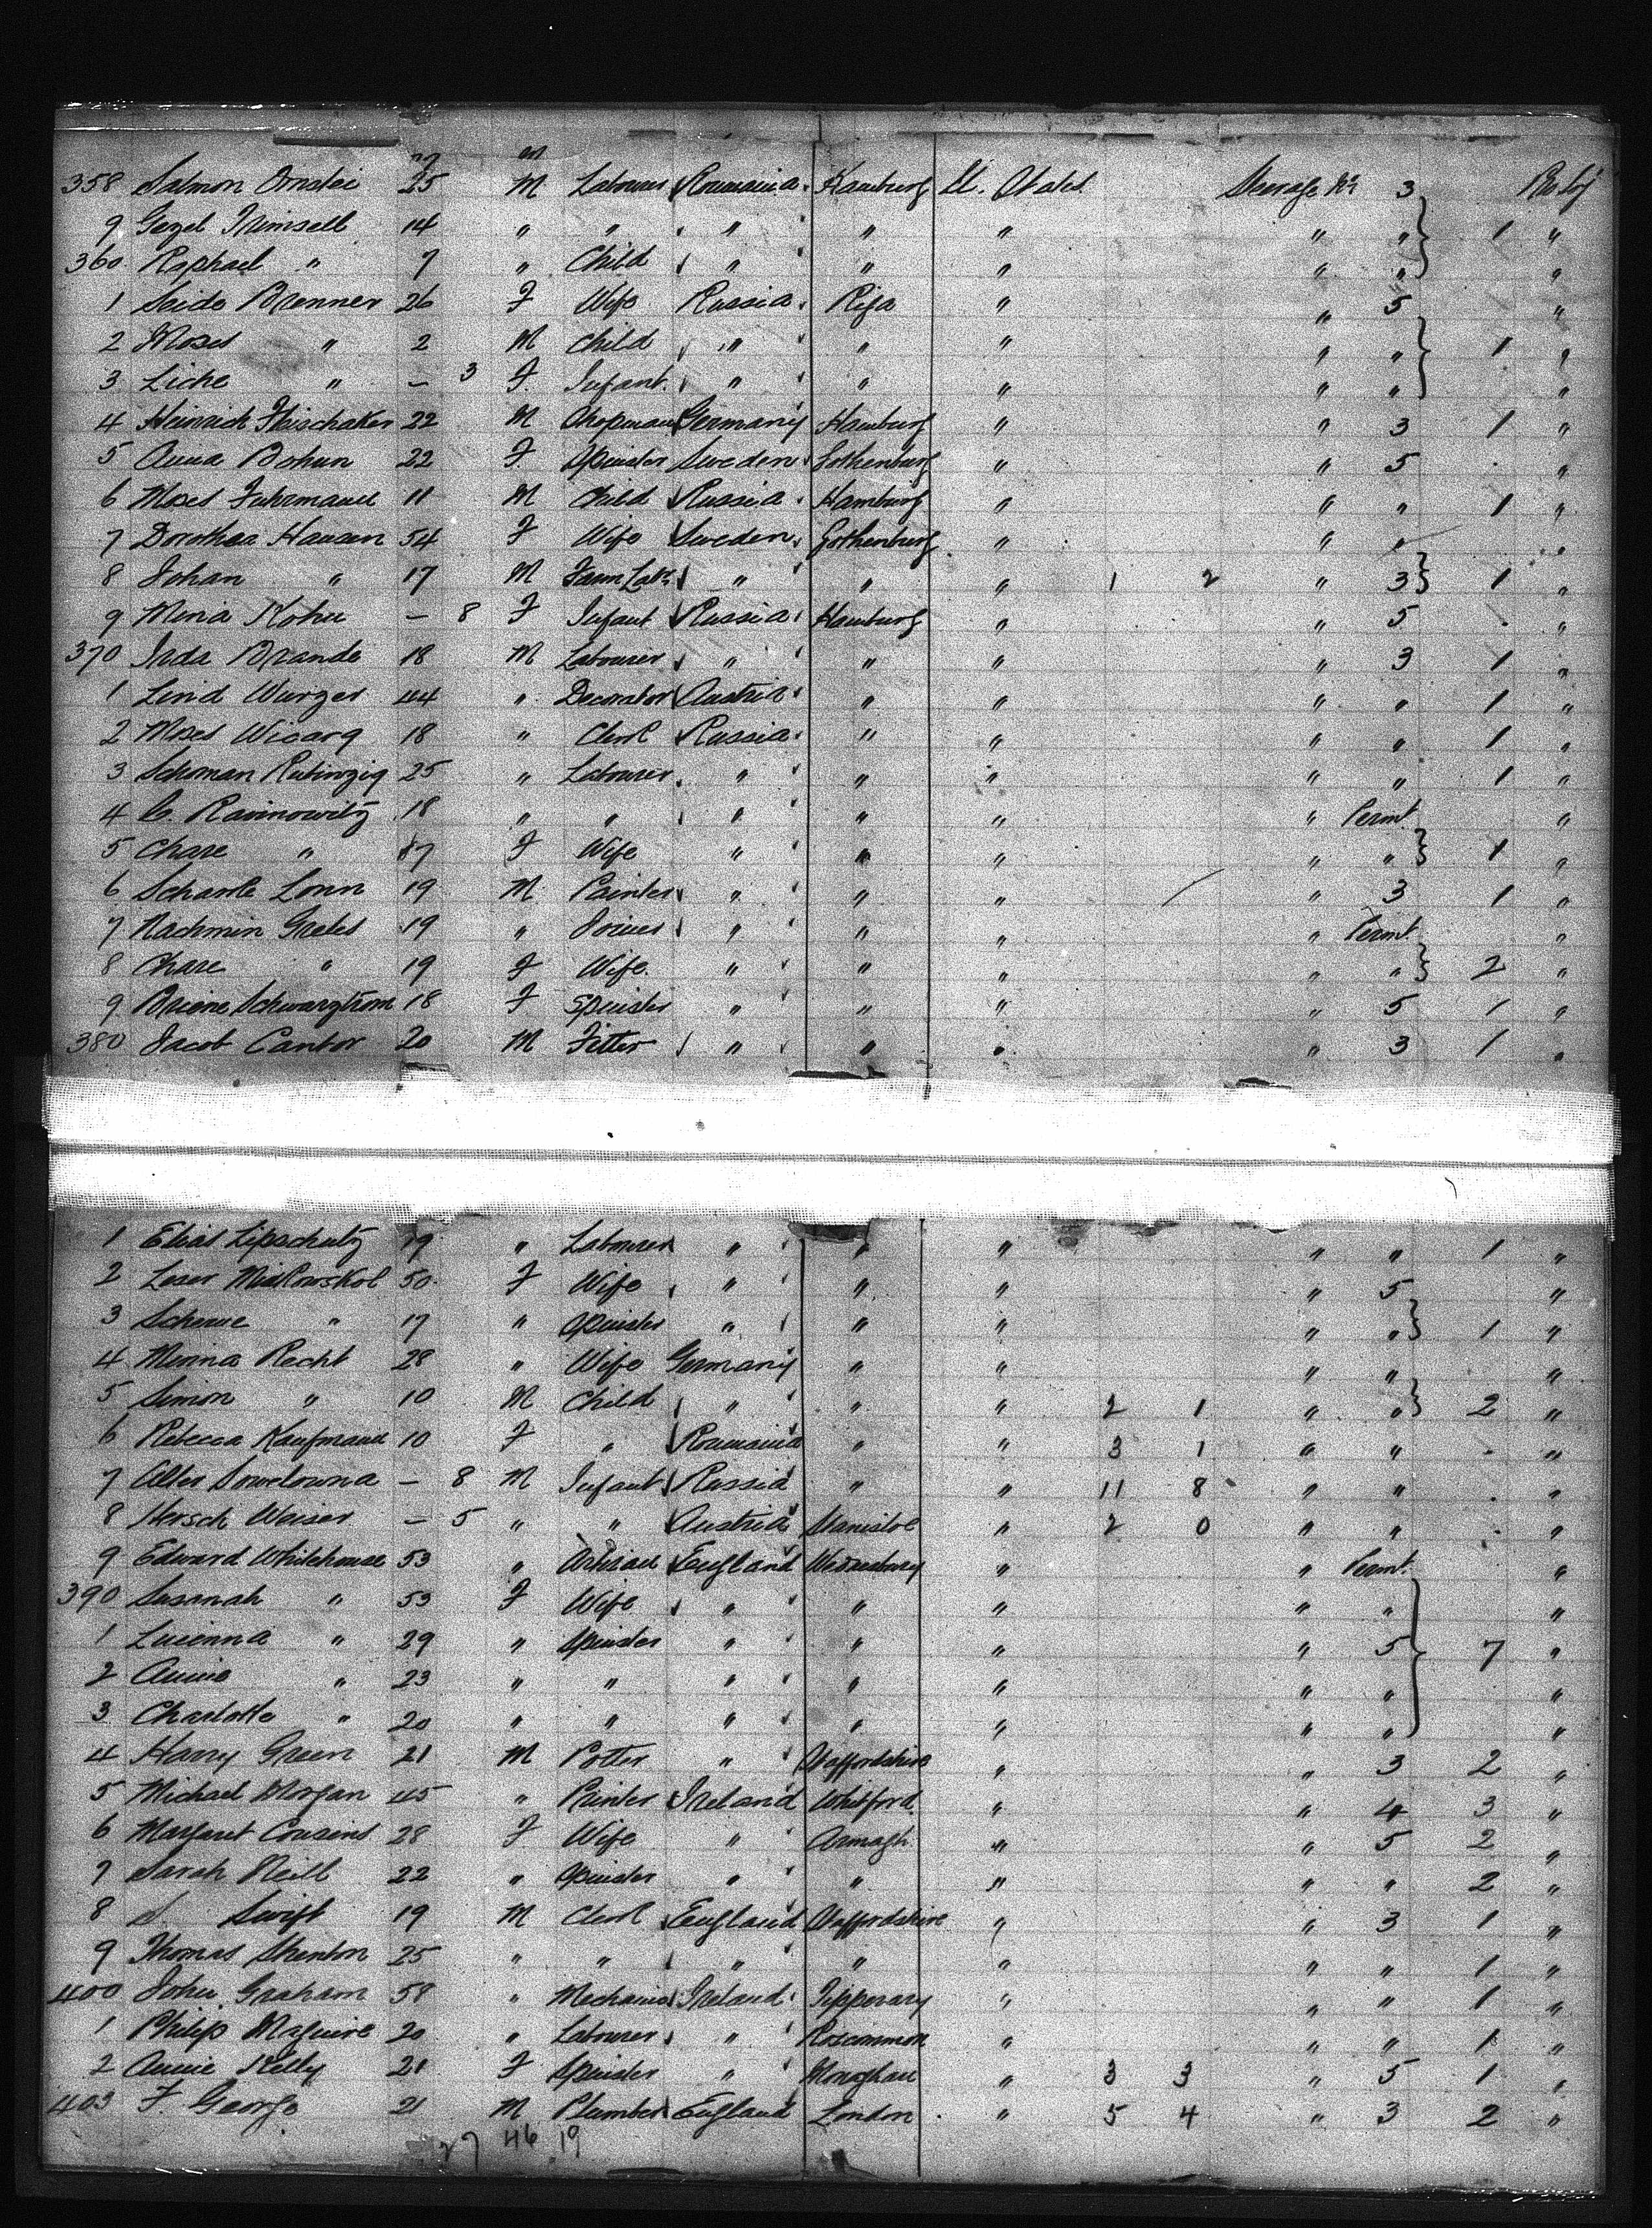 358 Salmon Ornstei 25 M Labourer Roumania Hamburg U. States Steerage No 3
9 Gezel 14 " " " " " " " 1 "
360 Raphael " 7 " Child " " " " " "
1 Brenner 26 F Wife Russia Riga " " 5 "
2 Moses " 2 M Child " " " " " 1 "
3 Liche " – 3 F Infant " " " " " "
4 Heinrich Fleischaker 22 M Chapman Germany Hamburg " " 3 1 "
5 Anna Bohun 22 F Spinster Sweden Gothenburg " " 5 "
6 Moses Fuhrmann 11 M Child Russia Hamburg " " " 1 "
7 Dorothea Hansen 54 F Wife Sweden Gothenburg " " " "
8 Johan " 17 M Farm Labr " " " 1 2 " 3 1 "
9 Mena Kohn – 8 F Infant Russia Hamburg " " 5 "
370 Brande 18 M Labourer " " " " 3 1 "
1 Wurzer 44 " Decorator Austria " " " " 1 "
2 Moses 18 " Clerk Russia " " " " 1 "
3 Schoman 25 " Labourer " " " " " 1 "
4 Ravinowitz 18 " " " " " " Permt "
5 Chare " 17 F Wife " " " " " 1 "
6 Lonn 19 M Painter " " " " 3 1 "
7 Nachmin Grebes 19 " Joiner " " " " Permt "
8 Chare " 19 F Wife " " " " " 2 "
9 18 F Spinster " " " " 5 1 "
380 Jacob Cantor 20 M Fitter " " " " 3 1 "
1 Elias Lipschutz 19 " Labourer " " " " " 1 "
2 Leser 50 F Wife " " " " 5 "
3 Scheme " 17 " Spinster " " " " " 1 "
4 Minna Recht 28 " Wife Germany " " " " "
5 Simon " 10 M Child " " " 2 1 " " 2 "
6 Rebecca Kaufmann 10 F " Roumania " " 3 1 " " "
7 Alter – 8 M Infant Russia " " 11 8 " " "
8 Hersch Weiser – 5 " " Austria " 2 0 " " "
9 Edward Whitehouse 53 " Artisan England Wednesbury " " Permt "
390 Susanah " 53 F Wife " " " " " "
1 Lucenna " 29 " Spinster " " " " 5 7 "
2 Annie " 23 " " " " " " " "
3 Charlotte " 20 " " " " " " " "
4 Harry Green 21 M Potter " Staffordshire " " 3 2 "
5 Michael Morgan 45 " Printer Ireland " " 4 3 "
6 Margaret Cousins 28 F Wife " Armagh " " 5 2 "
7 Sarah Neill 22 " Spinster " " " " " 2 "
8 S. Swift 19 M Clerk England Staffordshire " " 3 1 "
9 Thomas Shenton 25 " " " " " " " 1 "
400 John Graham 58 " Mechanic Ireland Tipperary " " " 1 "
1 Philip Maguire 20 " Labourer " Roscommon " " " 1 "
2 Annie Kelly 21 F Spinster " Monaghan " 3 3 " 5 1 "
403 F. George 21 M Plumber England London " 5 4 " 3 2 "
27 46 19